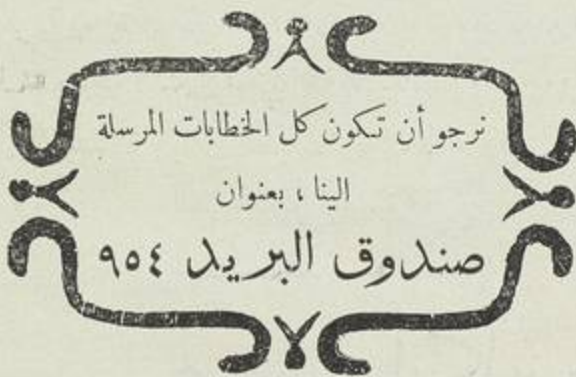 نرجو أن تكون كل الخطابات المرسلة
الينا ، بعنوان
صندوق البريد ٩٥٤